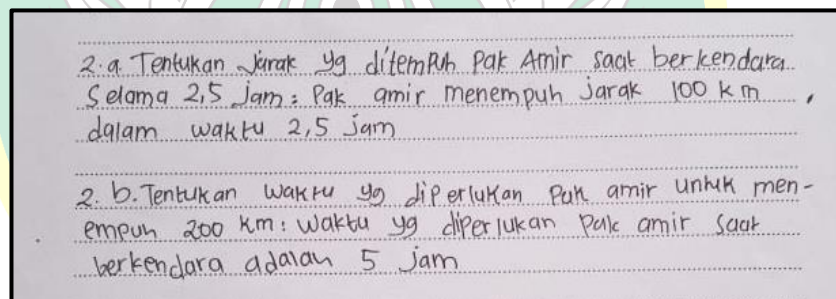 2.a Tentukan Jarak yg ditempuh Pak Amir saat berkendara
Selama 2,5 Jam : Pak amir menempuh jarak 100 km ,
dalam waktu 2,5 Jam
2. b. Tentukan waktu yg diperlukan Pak amir untuk men-
empuh 200 km : waktu yg diperlukan Pak amir saat
berkendara adalah 5 Jam